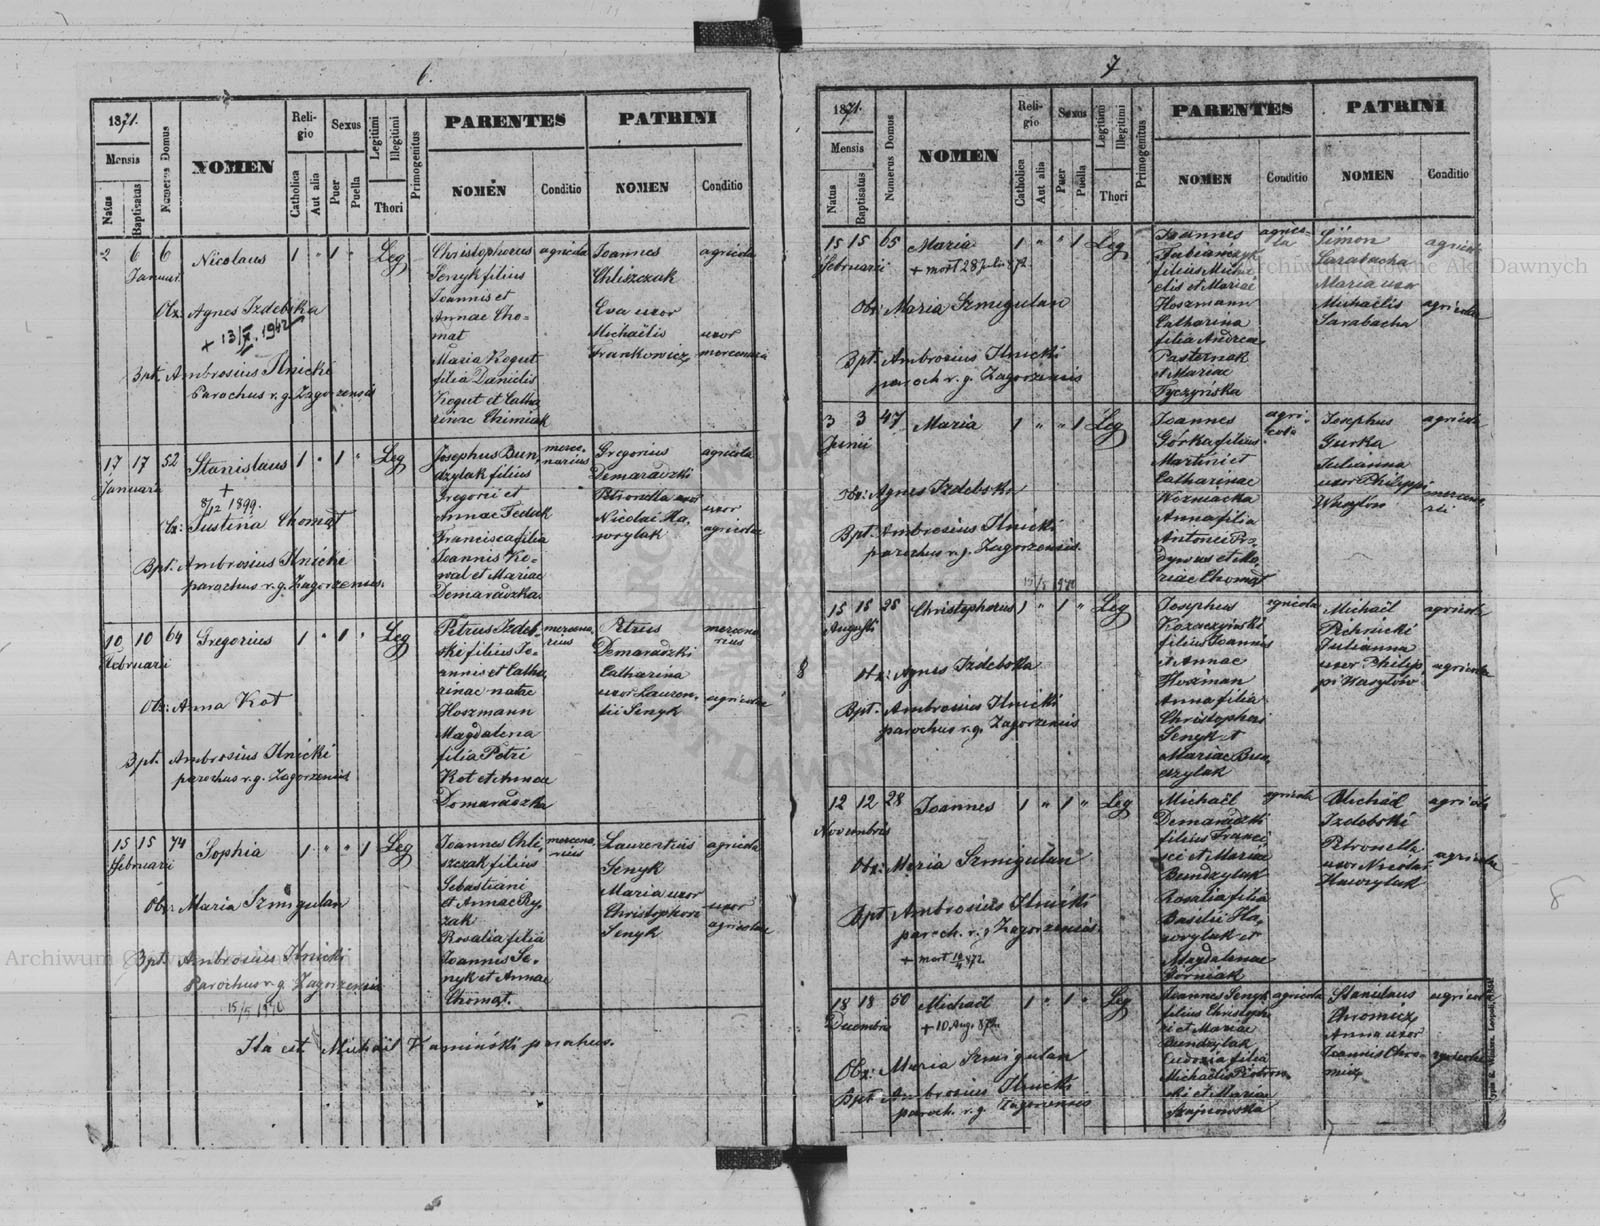 6.
1871.
Mensis
Natus
Baptisatus
Numerus Domus
NOMEN
Religio
Catholica
Aut alia
Sexus
Puer
Puella
Legitimi
Illegitimi
Thori
Primogenitus
PARENTES
NOMEN
Conditio
PATRINI
NOMEN
Conditio
2 6 6 Nicolaus 1 " 1 " Leg
Januar.
Obx. Agnes Izdebska
+ 13/X. 1942
Bpt. Ambrosius Ilnicki
Parochus r. g. Zagorzensis
Christophorus
Senyk filius
Joannis et
Annae Cho-
mat
Maria Kogut
filia Danielis
Kogut et Catha
rinae Chimiak
agricola
Joannes
Chliszczak
Eva uxor
Michaëlis
Frankowicz
agricola
uxor
mercenarii
17 17 52 Stanislaus 1 " 1 " Leg
Januarii
+
8/12 1899.
Obx: Justina Chomat
Bpt. Ambrosius Ilnicki
parochus r. g. Zagorzensis.
Josephus Bun
dzylak filius
Gregorii et
Annae Feduk
Francisca filia
Joannis Ko-
wal et Mariae
Demaradzka
merce-
narius
Gregorius
Demaradzki
Petronella uxor
Nicolai Ha-
wrylak
agricola
uxor
agricola
10 10 64 Gregorius 1 " 1 " Leg
Februarii
Obx: Anna Kot
Bpt. Ambrosius Ilnicki
parochus r. g. Zagorzensis
Petrus Izdeb-
ski filius Jo-
annis et Catha
rinae natae
Hoszmann
Magdalena
filia Petri
Kot et Annae
Domaradzka
mercena-
rius
Petrus
Demaradzki
Catharina
uxor Lauren-
tii Senyk
mercena
rius
agricola
15 15 74 Sophia 1 " " 1 Leg
Februarii
Obx: Maria Szmigulan
Bpt. Ambrosius Ilnicki
Parochus r. g. Zagorzensis
15/5 1970
Joannes Chli-
szczak filius
Sebastiani
et Annae Ry-
zak
Rosalia filia
Joannis Se-
nyk et Annae
Chomat.
mercena-
rius
Laurentius
Senyk
Maria uxor
Christophori
Senyk
agricola
uxor
agricolae
Ita est Michaël Kaminski parochus.
7.
1871.
Mensis
Natus
Baptisatus
Numerus Domus
NOMEN
Religio
Catholica
Aut alia
Sexus
Puer
Puella
Legitimi
Illegitimi
Thori
Primogenitus
PARENTES
NOMEN
Conditio
PATRINI
NOMEN
Conditio
15 15 65 Maria 1 " " 1 Leg
Februarii
+ mort 28 Julii 872
Obx: Maria Szmigulan
Bpt. Ambrosius Ilnicki
paroch r. g. Zagorzensis
Joannes
Fabiańczyk
filius Micha
elis et Mariae
Hoszmann
Catharina
filia Andreae
Pasternak
et Mariae
Tyczyńska
agrico-
la
Simon
Sarabacha
Maria uxor
Michaëlis
Sarabacha
agricola
agricolae
3 3 47 Maria 1 " " 1 Leg
Junii
Obx: Agnes Izdebska
Bpt. Ambrosius Ilnicki
parochus r. g. Zagorzensis.
Joannes
Gorka filius
Martini et
Catharinae
Anna filia
Antonii
et Ma-
riae Chomat
agri-
cola
Josephus
Gurka
Julianna
uxor Philippi
Wasylow
agricola
mercena-
rii
15/5 1970
15 15 25 Christophorus 1 " 1 " Leg
Augusti
Obx: Agnes Izdebska
Bpt. Ambrosius Ilnicki
parochus r. g. Zagorzensis
Josephus
Kozaczyński
filius Joannis
et Annae
Hoszman
Anna filia
Christophori
Senyk et
Mariae Bun
dzylak
agricola
Michaël
Pichnicki
Julianna
uxor Philip
pi Wasylów
agricola
agricolae
12 12 28 Joannes 1 " 1 " Leg
Novembris
Obx: Maria Szmigulan
Bpt Ambrosius Ilnicki
paroch. r. g. Zagorzensis.
+ mort 10/4 872
Michaël
Demaradzki
filius Franci
sci et Mariae
Bundzylak
Rosalia filia
Basilii Ha-
wrylak et
Magdalenae
Borniak
agricola
Michaël
Izdebski
Petronella
uxor Nicolai
Hawrylak
agricola
agricolae
18 18 50 Michaël 1 " 1 " Leg
Decembris
+ 10 Aug. 872
Obx: Maria Szmigulan
Bpt Ambrosius Ilnicki
paroch. r. g. Zagorzensis
Joannes Senyk
filius Christoph
ri et Mariae
Bundzylak
Eudoxia filia
Michaëlis Piotrow-
ski et Mariae
Szajnowska
agricola
Stanislaus
Chromicz
Anna uxor
Joannis Chro-
micz
agricola
8
8
Archiwum Główne Akt Dawnych
Archiwum Główne Akt Dawnych